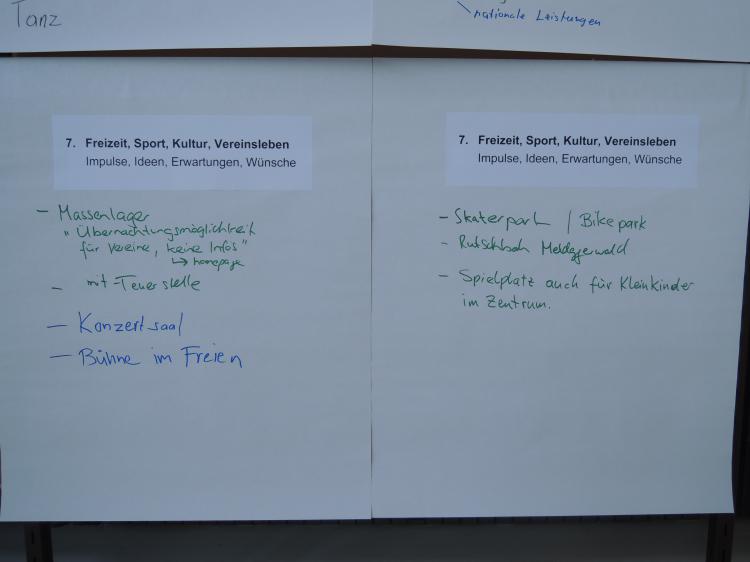 Tanz
nationale Leistungen
7. Freizeit, Sport, Kultur, Vereinsleben
Impulse, Ideen, Erwartungen, Wünsche
- Massenlager
"Übernachtungsmöglichkeit
für Vereine, keine Infos"
↳ homepage
- mit Feuerstelle
- Konzertsaal
- Bühne im Freien
7. Freizeit, Sport, Kultur, Vereinsleben
Impulse, Ideen, Erwartungen, Wünsche
- Skaterpark / Bikepark
- Rutschbah
- Spielplatz auch für Kleinkinder
im Zentrum.